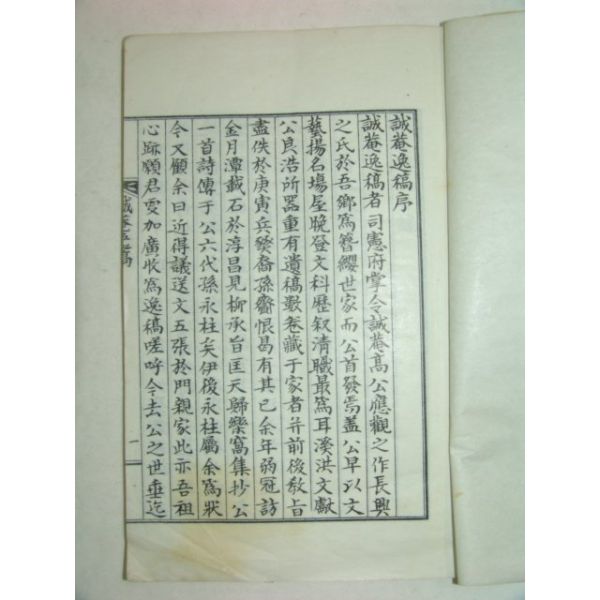 誠菴逸稿序
誠菴逸稿者司憲府掌令誠菴高公應觀之作長興
之氏於吾鄉爲簪纓世家而公首發焉蓋公早以文
藝揚名場屋晚登文科歷叙清職最爲耳溪洪文獻
公良浩所器重有遺稿數卷藏于家者并前後敎旨
盡佚於庚寅兵燹裔孫齋恨曷有其已余年弱冠訪
金月潭載石於淳昌見柳承旨匡天歸樂窩集抄公
一首詩傳于公六代孫永柱矣伊後永柱屬余爲狀
今又顧余曰近得議送文五張於門親家此亦吾祖
心跡願君更加廣收爲逸稿嗟呼今去公之世垂迄
誠菴逸稿
一